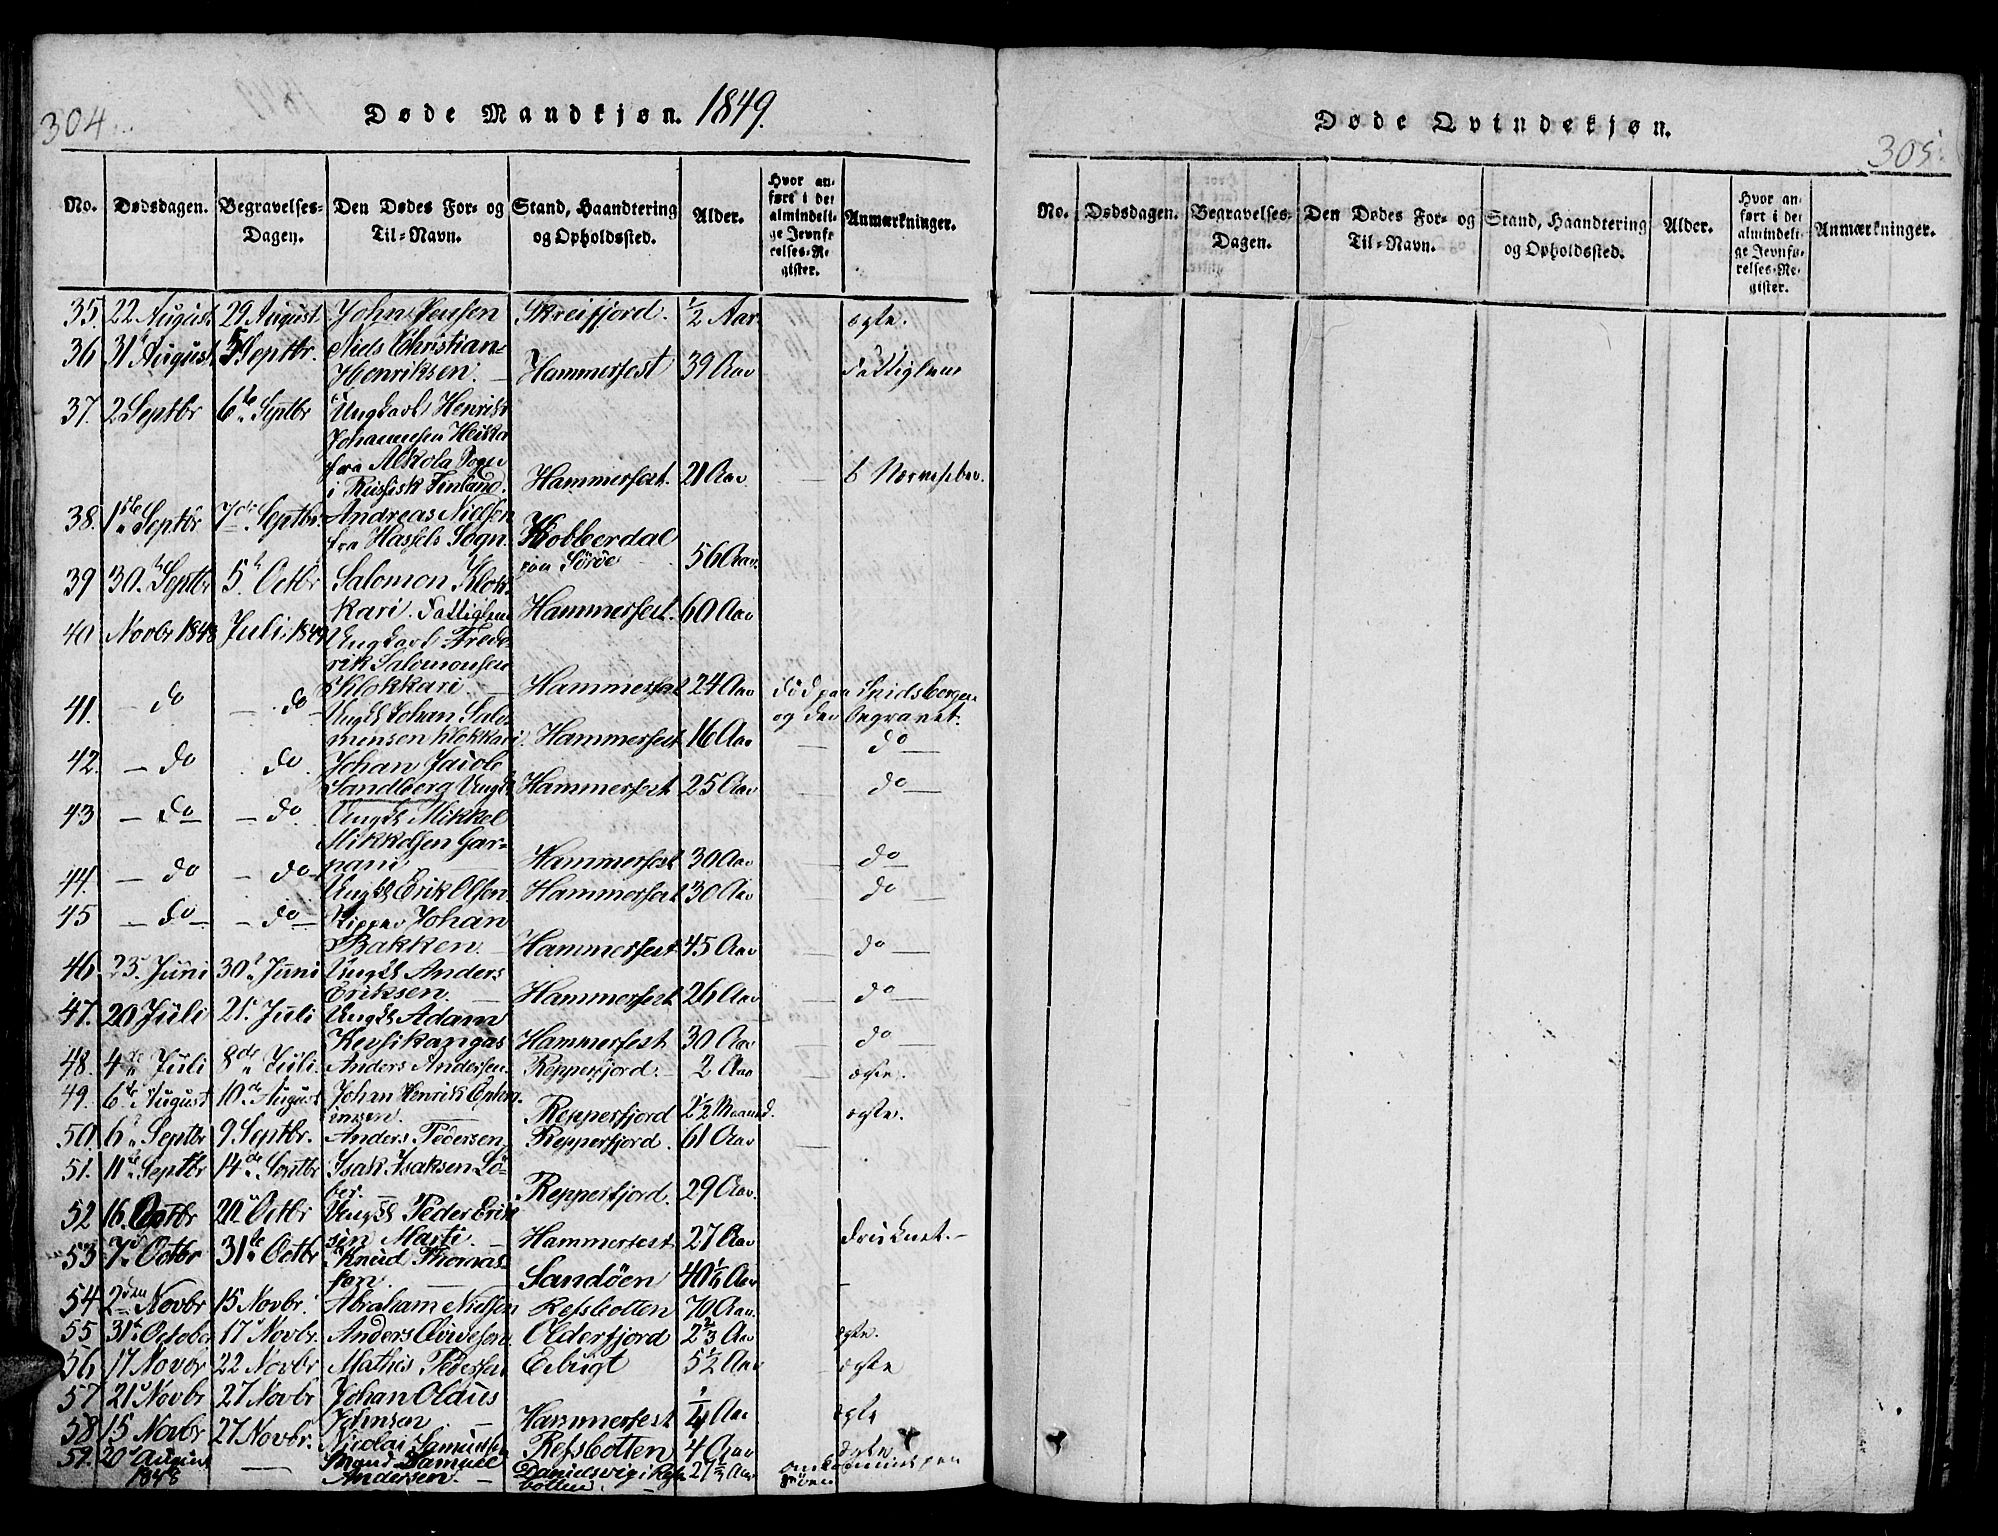 304
Døde Mandkjøn. 1849.
No. Dødsdagen. Begravelses-Dagen. Den Dødes For- og Til-Navn. Stand, Haandtering og Opholdssted. Alder. Hvor anført i det almindelige Jevnførelses-Register. Anmærkninger.
35. 22 August 29 August John Jensen Skreifjord. 1/2 Aar. ægte.
36 31 August 5 Septbr. Niels Christian
Henriksen. Hammerfest 39 Aar Fattiglem
37. 2 Septbr 6te Septbr Ungkarl Henrik
Johannesen Heika
fra Alkola Sogn
i Russisk Finland. Hammerfest. 21 Aar —
38. 1ste Septbr 7de Septbr. Andreas Nielsen
fra Hassels Sogn. Kobberdal
paa Söröe 56 Aar.
39 30te Septbr 5t Octbr Salomon Klok-
kari. Fattiglem Hammerfest. 60 Aar
40. Novbr 1848 Juli 1849 Ungkarl Frede-
rik Salomonsen
Klokkari. Hammerfest 24 Aar død paa Spidsbergen
og der begravet.
41. — do — do — Ungk Johan Salo-
monsen Klokkari. Hammerfest 16 Aar — do —
42. — do do. Johan Jacob
Sandberg Ungk Hammerfest 25 Aar do —
43 — do — — do. Ungk Mikkel
Mikkelsen Gar-
pani Hammerfest 30 Aar — do —
44. — do — do — Ungk Erik Olsen. Hammerfest 30 Aar — do —
45 — do — — do — Skipper Johan
Bakken. — Hammerfest 45 Aar — do —
46. 23. Juni 30t Juni Ungk Anders
Eriksen. — Hammerfest 26 Aar — do —
47. 20 Juli 21. Juli Ungk Adam
Kevsikangas Hammerfest 30 Aar — do —
48. 4de Juli 8de Juli. Anders Andersen. Repperfjord. 2 Aar — ægte.
49. 6te August 10de August Johan Henrik
Repperfjord 2 1/2 Maaned. ægte.
50. 6t Septbr 9 Septbr. Anders Pedersen Repperfjord. 61 Aar —
51. 11te Septbr 14de Septbr Isak Isaksen Sö-
ber. — Repperfjord. 29 Aar.
52 16. Octbr 20 Octbr Ungk Peder Erik
sen Marti. — Hammerfest. 27 Aar druknet. —
53. 7d Octbr 31te Octbr Knud Thomas-
sen. Sandöen 40 1/2 Aar —
54 2den Novbr 15 Novbr. Abraham Nielsen Refsbotten 70 Aar.
55 31te October 17 Novbr. Anders Olderfjord 2 2/3 Aar ægte.
56 17 Novbr 22 Novbr Mathis Pedersen Eebugt 5 1/2 Aar — ægte
57 21 Novbr 27 Novbr Johan Olaus
Johnsen — Hammerfest 1/4 Aar ægte
58 15 Novbr 27 Novbr. Nicolai Samuelsen Refsbotten 4 Aar ægte
59. 20 August
1848 — Samuel
Andersen. — Danielsvig i Refs-
botten. — 27 1/2 Aar omkommet paa
Søen
Døde Qvindekjøn.
305.
No. Dødsdagen. Begravelses-Dagen. Den Dødes For- og Til-Navn. Stand, Haandtering og Opholdssted. Alder. Hvor anført i det almindelige Jevnførelses-Register. Anmærkninger.